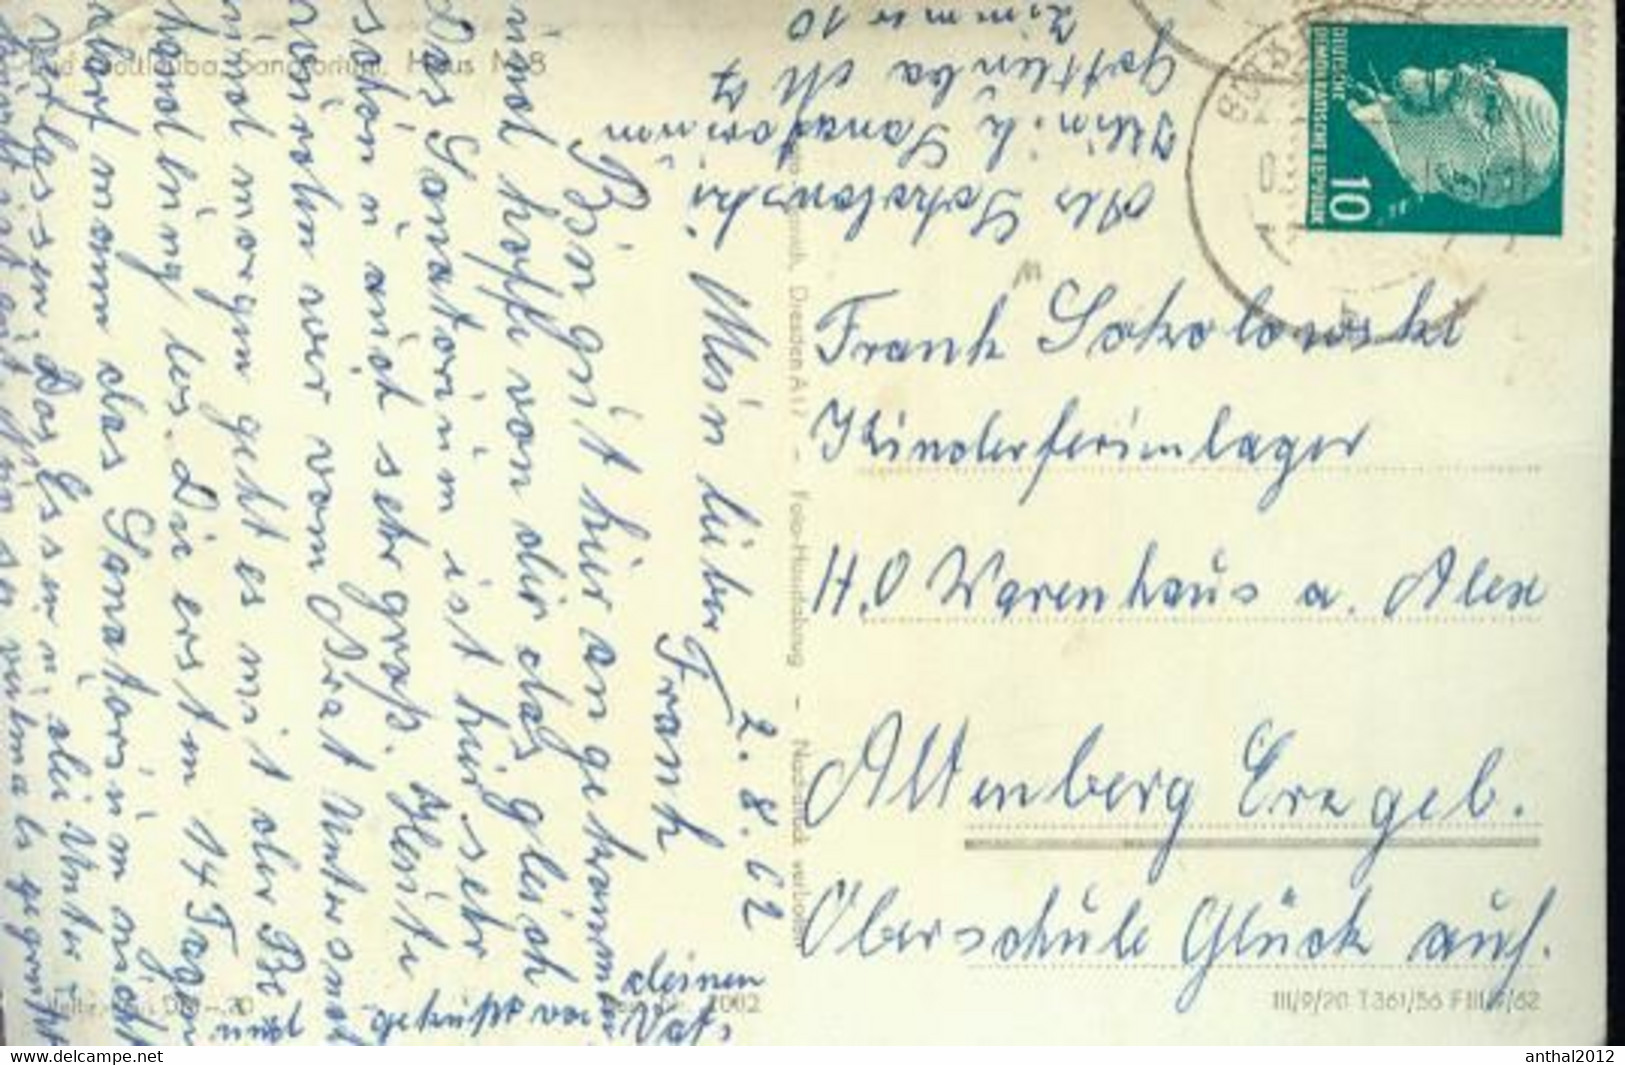 Mein lieber Frank
2.8.62
Bin gut hier angekommen
und hoffe von dir das gleiche
Das Sanatorium ist hier sehr
schön und sehr groß. Heute
wurden wir vom Arzt Untersucht
und morgen geht es mit der Be
handlung los. Die ersten 14 Tage
darf mann das Sanatorium nicht
verlassen. Das Essen u. die Unter
und geküßt von
deinen
Bad Gottleuba, Sanatorium, Haus Nr. 8
Abs Sokolowski
Klinik Sanatorium
Gottleuba M 7
Zimmer 10
Dresden A 17 – Foto-Handabzug – Nachdruck verboten
DEUTSCHE
DEMOKRATISCHE REPUBLIK
10
Frank Sokolowski
Kinderferienlager
H.O Warenhaus a. Alex
Altenberg Erzgeb.
Oberschule Glück auf.
III/9/20 T 361/56 F III/9/62
Delcampe.net
anthal2012